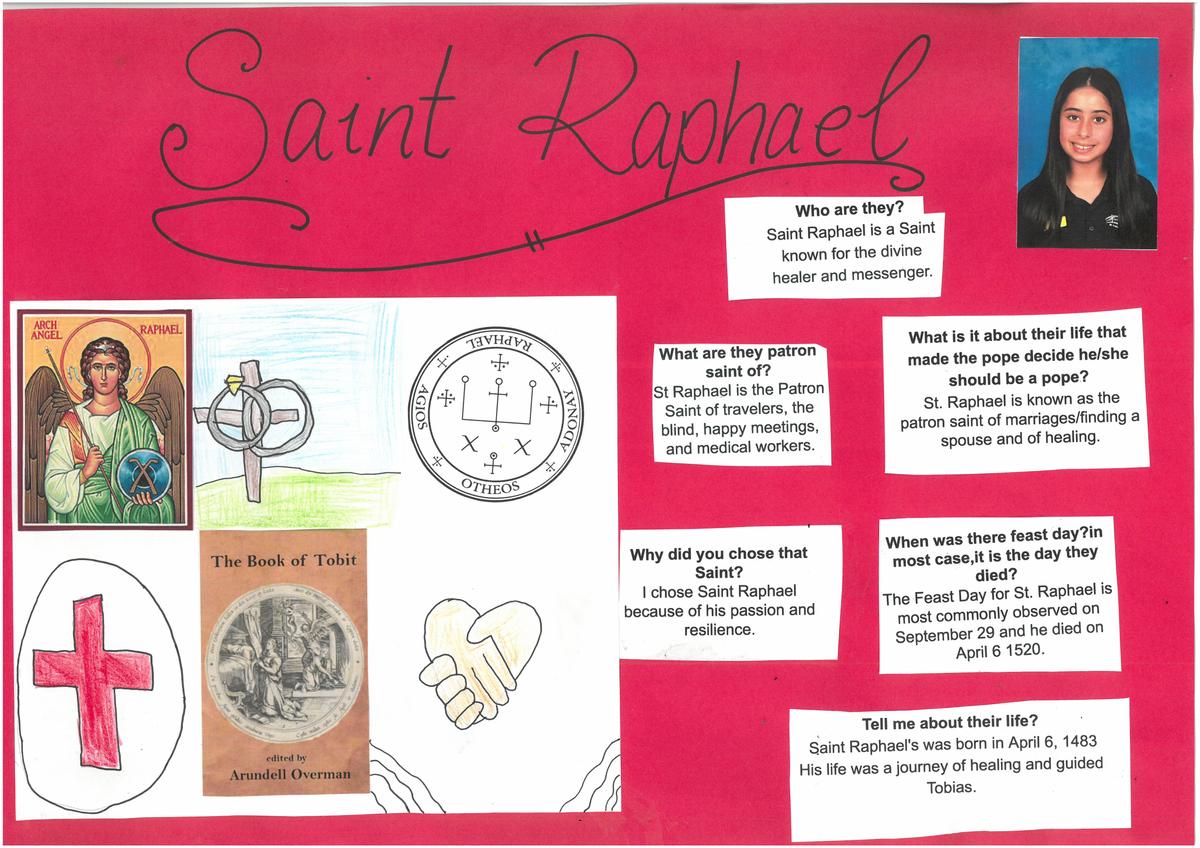 Saint Raphael
Who are they?
Saint Raphael is a Saint
known for the divine
healer and messenger.
What are they patron
saint of?
St Raphael is the Patron
Saint of travelers, the
blind, happy meetings,
and medical workers.
What is it about their life that
made the pope decide he/she
should be a pope?
St. Raphael is known as the
patron saint of marriages/finding a
spouse and of healing.
Why did you chose that
Saint?
I chose Saint Raphael
because of his passion and
resilience.
When was there feast day?in
most case,it is the day they
died?
The Feast Day for St. Raphael is
most commonly observed on
September 29 and he died on
April 6 1520.
Tell me about their life?
Saint Raphael's was born in April 6, 1483
His life was a journey of healing and guided
Tobias.
ARCH RAPHAEL
ANGEL
RAPHAEL
ADONAY
OTHEOS
AGIOS
The Book of Tobit
edited by
Arundell Overman